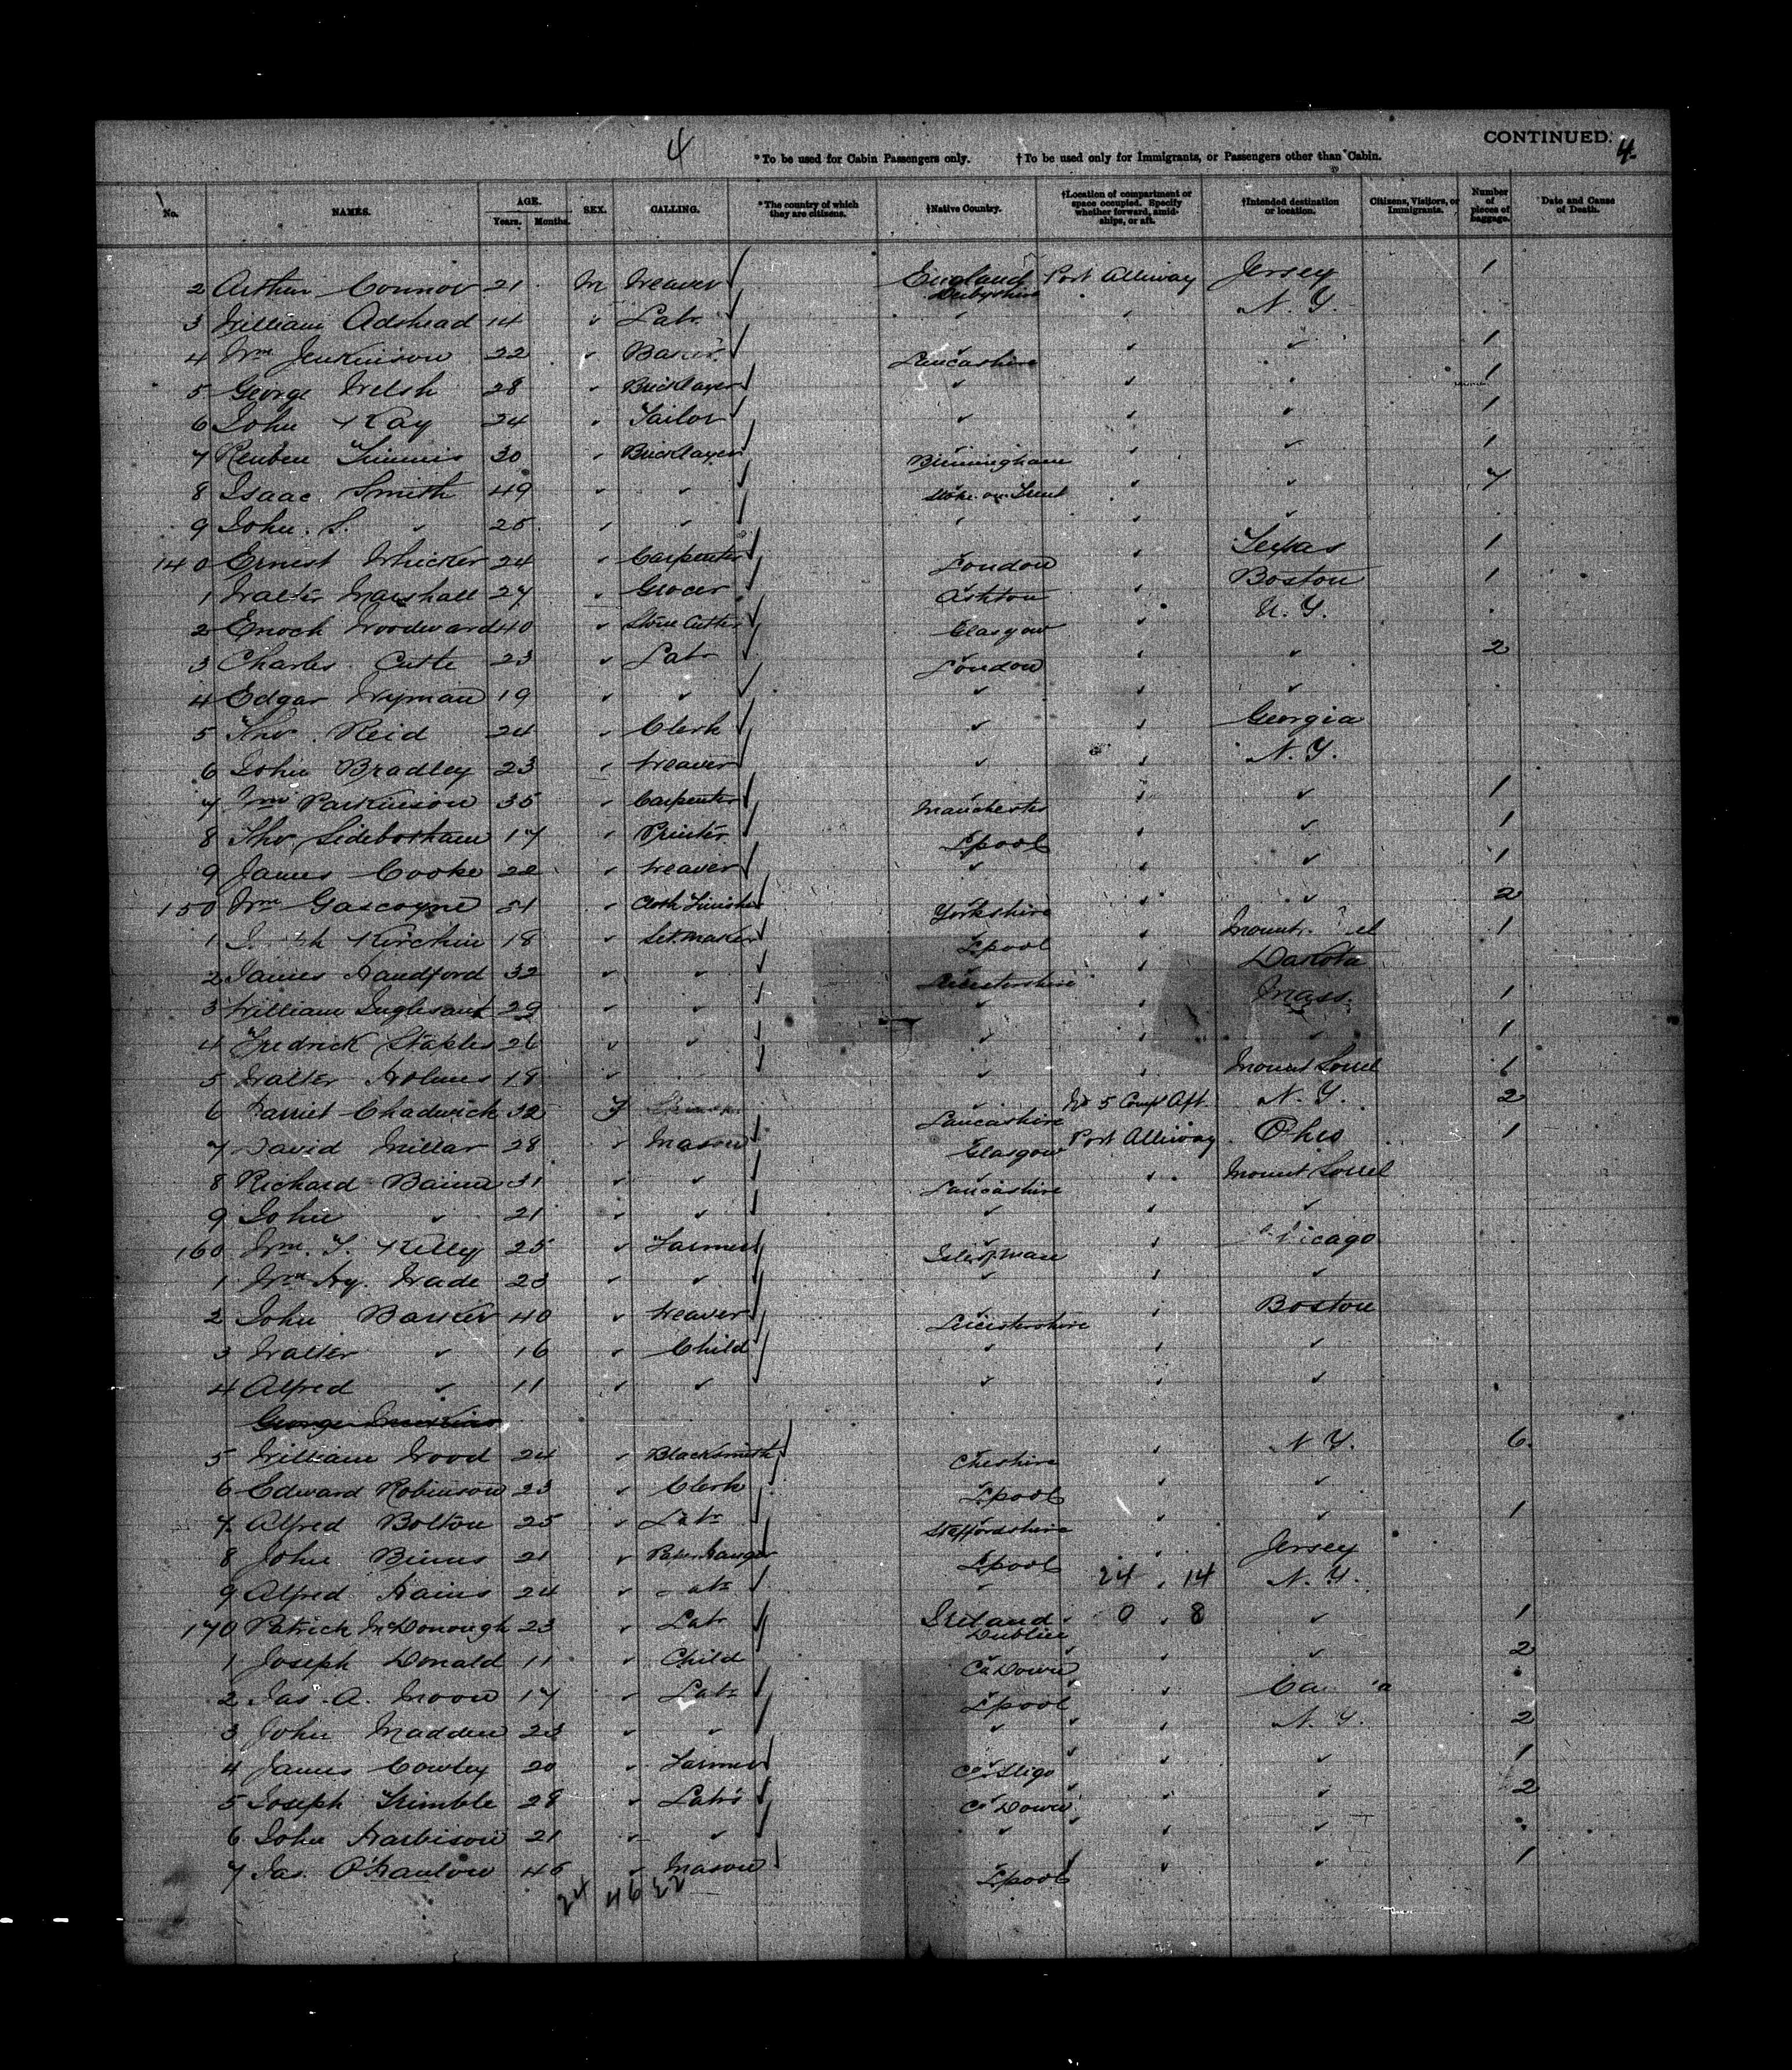 4
CONTINUED.
4.
*To be used for Cabin Passengers only. †To be used only for Immigrants, or Passengers other than Cabin.
No. NAMES. AGE. Years. Months. SEX. CALLING. *The country of which they are citizens. †Native Country. †Location of compartment or space occupied. Specify whether forward, amidships, or aft. †Intended destination or location. Citizens, Visitors, or Immigrants. Number of pieces of baggage. Date and Cause of Death.
2 Arthur Connor 21 M Weaver England Derbyshire Port Alliway Jersey 1
3 William Adshead 14 ✓ Labr ✓ ✓ N. Y.
4 Wm Jenkinson 22 ✓ Lancashire ✓ ✓ 1
5 George Welsh 28 ✓ Bricklayer ✓ ✓ ✓ 1
6 John Kay 24 ✓ Tailor ✓ ✓ ✓ 1
7 Reuben Timmis 30 ✓ Bricklayer Birmingham ✓ ✓ 1
8 Isaac Smith 49 ✓ ✓ Stoke on Trent ✓ ✓ 7
9 John S. ✓ 25 ✓ ✓ ✓ ✓ ✓
140 Ernest Whicker 24 ✓ Carpenter London ✓ Texas 1
1 Walter Marshall 27 ✓ Grocer Ashton ✓ Boston 1
2 Enoch Woodward 40 ✓ Stone Cutter Glasgow ✓ N. Y.
3 Charles Cutte 23 ✓ Labr London ✓ ✓ 2
4 Edgar Wyman 19 ✓ ✓ ✓ ✓
5 Thos Reid 24 ✓ Clerk ✓ ✓ Georgia
6 John Bradley 23 ✓ Weaver ✓ ✓ N. Y.
7 Wm Parkinson 35 ✓ Carpenter Manchester ✓ ✓ 1
8 Thos Sidebotham 17 ✓ Printer L'pool ✓ ✓ 1
9 James Cooke 22 ✓ Weaver ✓ ✓ ✓ 1
150 Wm Gascoyne 51 ✓ Cloth Finisher Yorkshire ✓ ✓ 2
1 Kirchin 18 ✓ Set. Maker L'pool ✓ Mount 1
2 James Handford 32 ✓ ✓ Leicestershire ✓ Dakota
3 William Inglesant 29 ✓ ✓ ✓ ✓ Mass. 1
4 Fredrick Staples 26 ✓ ✓ ✓ ✓ ✓ 1
5 Walter Holmes 18 ✓ ✓ ✓ Mount Sorrel 1
6 Harriet Chadwick 32 F Lancashire No 5 Compt Aft N. Y. 2
7 David Millar 28 ✓ Mason Glasgow Port Alliway Ohio 1
8 Richard Bainn 31 ✓ ✓ Lancashire ✓ Mount Sorrel
9 John ✓ 21 ✓ ✓ ✓ ✓ ✓
160 Wm. T. Kelly 25 ✓ Farmer Isle of Man ✓ Chicago
1 Wm Hy. Wade 23 ✓ ✓ ✓ ✓ ✓
2 John Barker 40 ✓ Weaver Leicestershire ✓ Boston
3 Walter ✓ 16 ✓ Child ✓ ✓ ✓
4 Alfred ✓ 11 ✓ ✓ ✓ ✓ ✓
George
5 William Wood 24 ✓ Blacksmith Cheshire ✓ N. Y. 6
6 Edward Robinson 23 ✓ Clerk L'pool ✓ ✓
7 Alfred Bolton 25 ✓ Labr Staffordshire ✓ ✓ 1
8 John Binns 21 ✓ Paper hanger L'pool ✓ Jersey
9 Alfred Hains 24 ✓ Labr ✓ 24 14 N. Y.
170 Patrick McDonough 23 ✓ Labr Ireland Dublin 0 8 ✓ 1
1 Joseph Donald 11 ✓ Child Co Down ✓ ✓ 2
2 Jas. A. Moon 17 ✓ Labr L'pool ✓
3 John Madden 23 ✓ ✓ ✓ ✓ N. Y. 2
4 James Cowley 20 ✓ Farmer Co. Sligo ✓ ✓ 1
5 Joseph Trimble 28 ✓ Labr Co Down ✓ ✓ 2
6 John Harbison 21 ✓ ✓ ✓ ✓ ✓
7 Jas. O'Hanlon 45 ✓ Mason L'pool ✓ ✓ 1
24 46 22